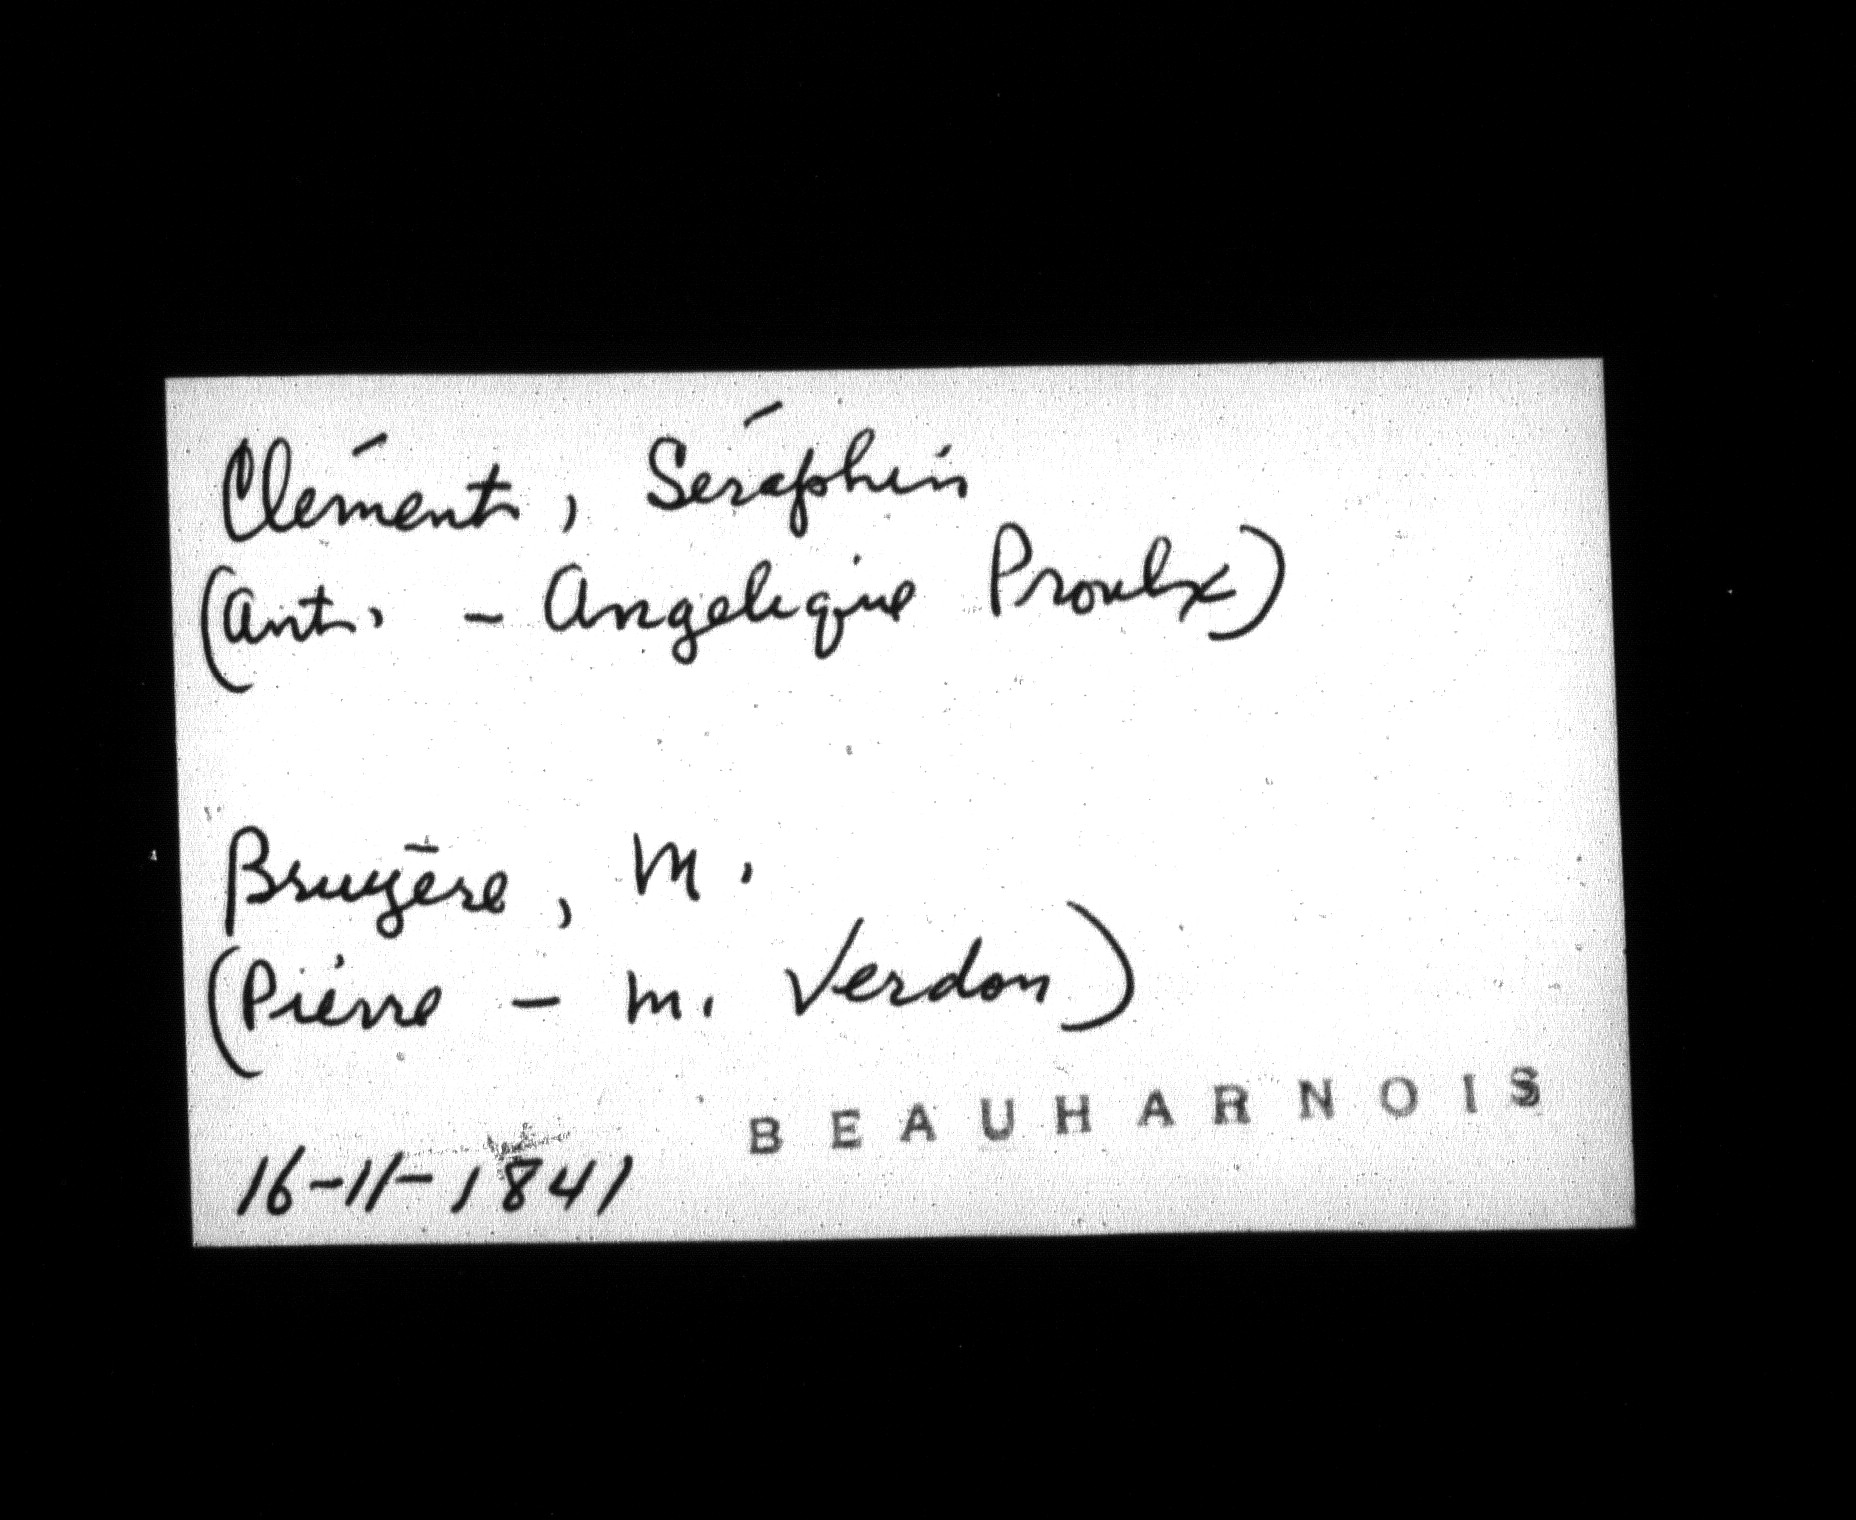 Clément, Séraphin
(Ant. - Angelique Proulx)
Bruyère, M.
(Pierre - M. Verdon)
BEAUHARNOIS
16-11-1841